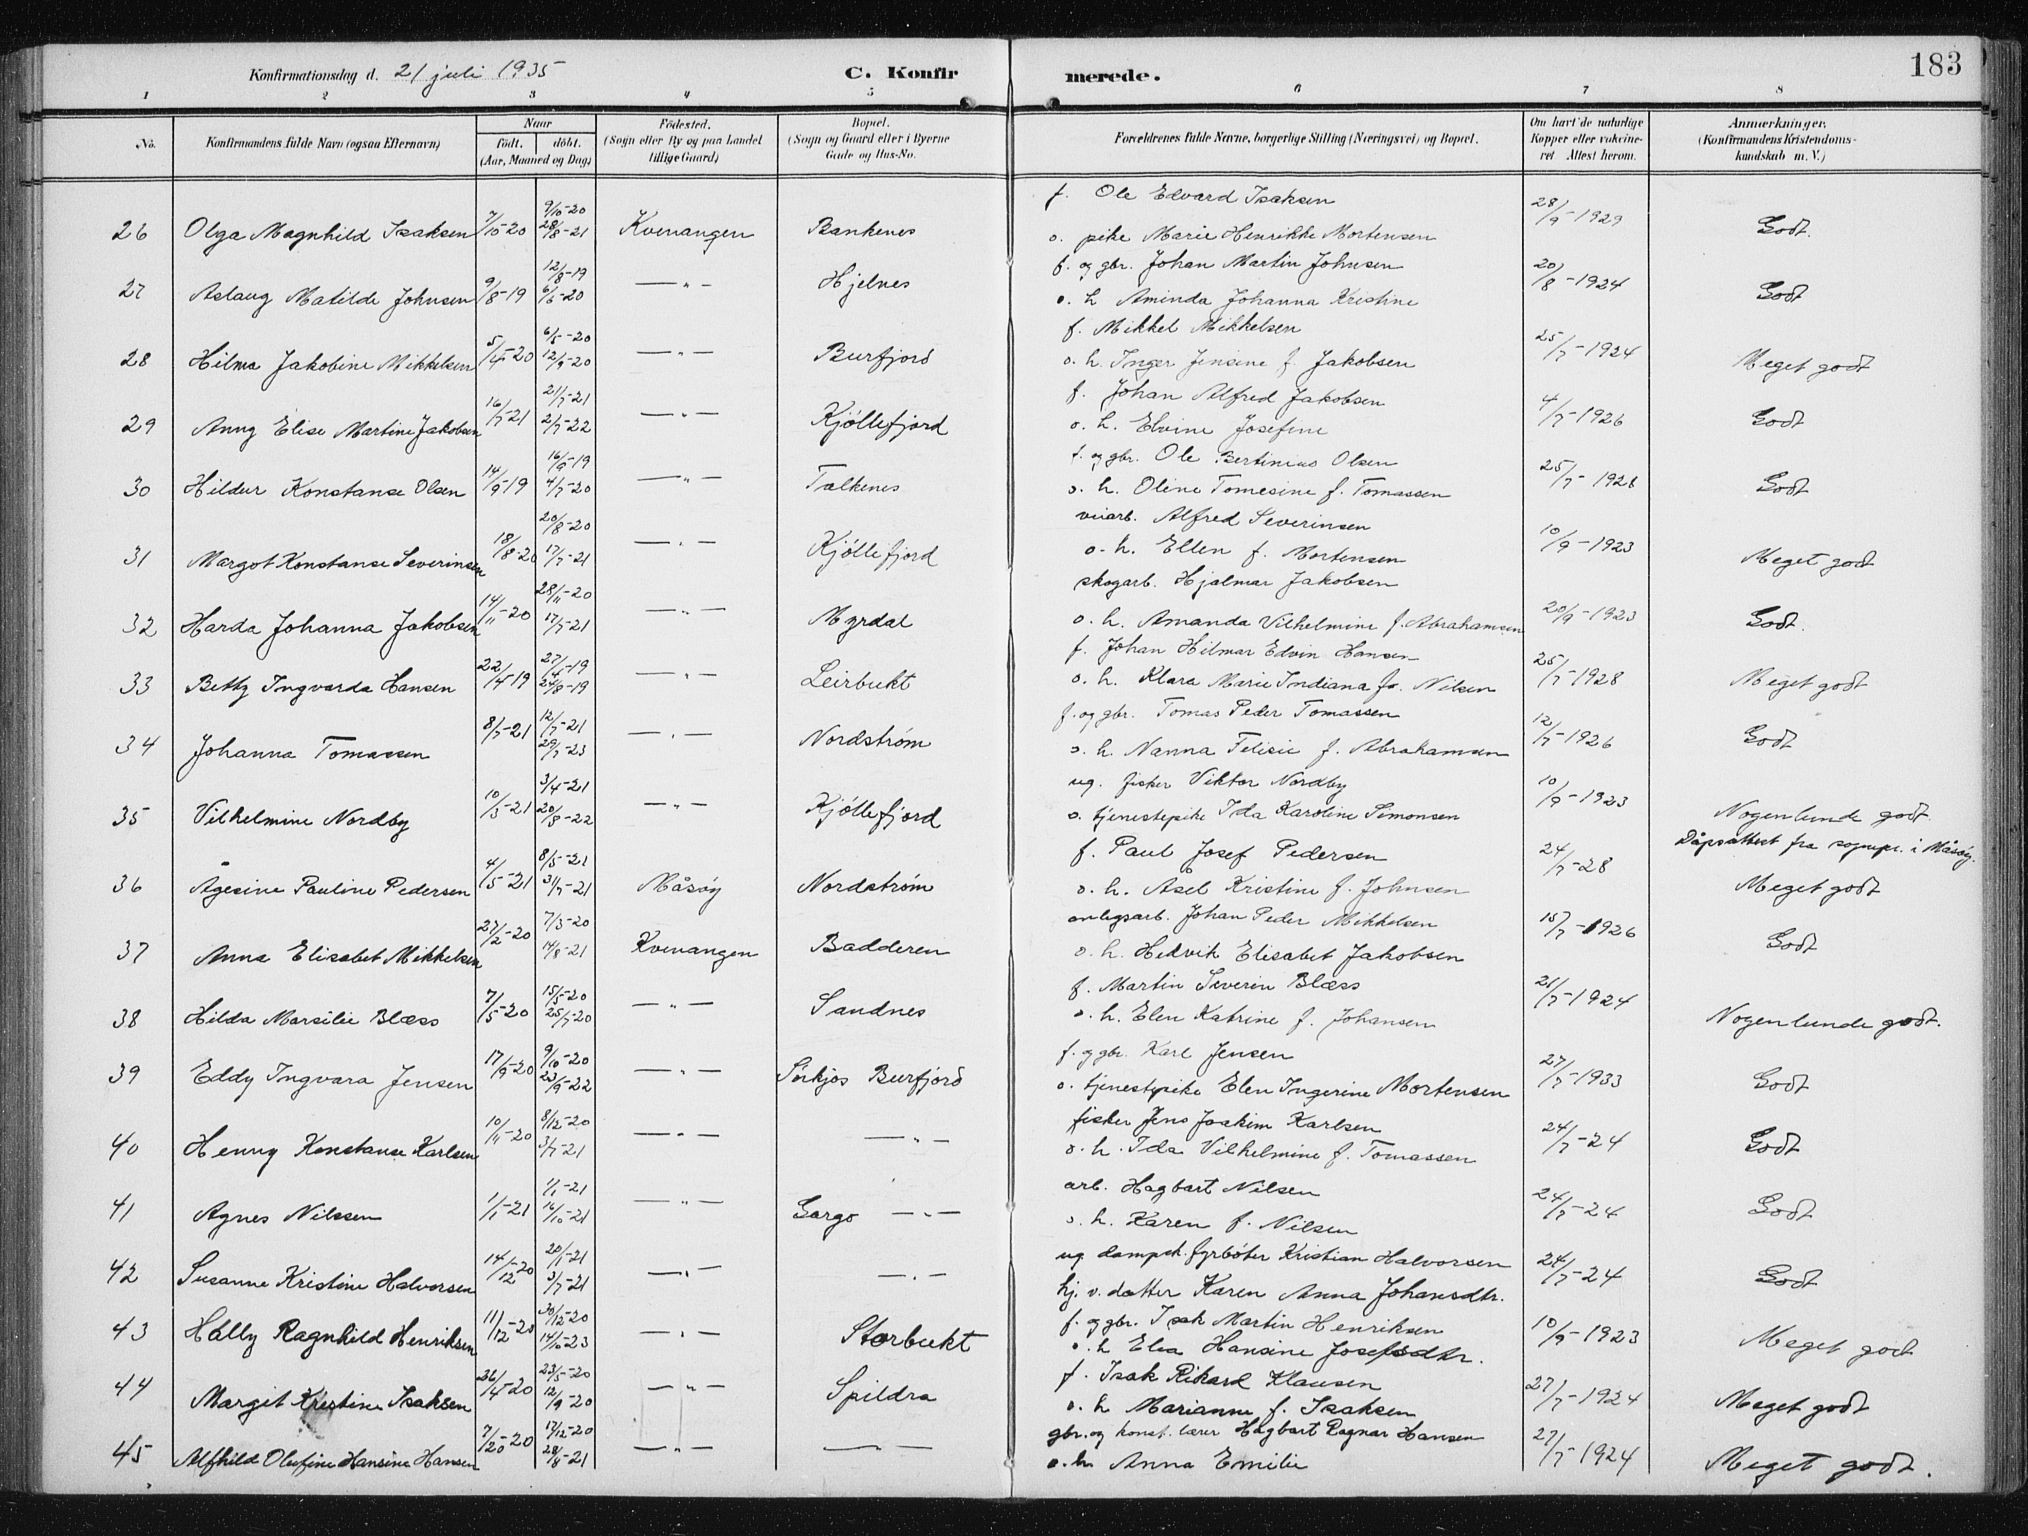 183
Konfirmationsdag d. 21 juli 1935 C. Konfirmerede.
1 2 3 4 5 6 7 8
No. Konfirmandens fulde Navn (ogsaa Efternavn) Naar født. døbt. (Aar, Maaned og Dag) Fødested. (Sogn eller By og paa Landet tillige Gaard) Bopæl. (Sogn og Gaard eller i Byerne Gade og Hus-No. Forældrenes fulde Navne, borgerlige Stilling (Næringsvei) og Bopæl. Om havt de naturlige Kopper eller vakcineret Attest herom. Anmærkninger. (Konfirmandens Kristendomskundskab m. V.)
9/10-20 f. Ole Edvard Isaksen
26 Olga Magnhild Isaksen 7/10-20 28/8-21 Kvenangen Bankenes o. pike Marie Henrikke Mortensen 28/9-1929 Godt.
12/8-19 f. og gbr. Johan Martin Johnsen
27 Aslaug Matilde Johnsen 9/8-19 6/6-20 — " — Hjelnes o. h Aminda Johanna Kristine 20/8-1924 Godt
6/5-20 f. Mikkel Mikkelsen
28 Hilma Jakobine Mikkelsen 5/4-20 12/9-20 — " — Burfjord o. h. Inger Jensine f. Jakobsen 25/7-1924 Meget godt
21/7-21 f. Johan Alfred Jakobsen
29 Anny Elise Martine Jakobsen 16/7-21 2/7-22 — " — Kjøllefjord o. h. Elvine Josefine 4/7-1926 Godt
16/9-19 f. og gbr. Ole Bertinius Olsen
30 Hildur Konstanse Olsen 14/9-19 4/7-20 — " — Talkenes o. h. Oline Tomesine f. Tomassen 25/7-1928 Godt
20/8-20 veiarb. Alfred Severinsen
31 Margot Konstanse Severinsen 18/8-20 17/7-21 — " — Kjøllefjord o. h. Ellen f. Mortensen 10/9-1923 Meget godt
28/11-20 skogarb. Hjalmar Jakobsen
32 Harda Johanna Jakobsen 14/11-20 17/7-21 — " — Myrdal o. h. Amanda Vilhelmine f. Abrahamsen 20/9-1923 Godt.
27/4-19 f. Johan Hilmar Edvin Hansen
33 Betty Ingvarda Hansen 22/4-19 24/8-19 — " — Leirbukt o. h. Klara Marie Indiana fo. Nilsen 25/7-1928 Meget godt
12/7-21 f. og gbr. Tomas Peder Tomassen
34 Johanna Tomassen 8/7-21 29/7-23 — " — Nordstrøm o. h. Nanna Felisie f. Abrahamsen 12/7-1926 Godt
3/4-21 ug. fisker Viktor Nordby
35 Vilhelmine Nordby 10/3-21 20/8-22 — " — Kjøllefjord o. tjenestepike Ida Karoline Simonsen 10/9-1923 Nogenlunde godt
8/5-21 f. Paul Josef Pedersen Dåpsattest fra sognepr. i Måsøy.
36 Ågesine Pauline Pedersen 4/5-21 31/7-21 Måsøy Nordstrøm o. h. Asel Kristine f. Johnsen 24/7-28 Meget godt
7/3-20 anlegsarb. Johan Peder Mikkelsen
37 Anna Elisabet Mikkelsen 27/2-20 14/8-21 Kvenangen Badderen o. h. Hedvik Elisabet Jakobsen 15/7-1926 Godt
15/5-20 f. Martin Severin Blæss
38 Hilda Marsilie Blæss 7/5-20 25/7-20 — " — Sandnes o. h. Elen Katrine f. Johansen 21/7-1924 Nogenlunde godt.
9/10-20 f. og gbr. Karl Jensen
39 Eddy Ingvara Jensen 17/9-20 23/9-22 — " — Sørkjos Burfjord o. tjenestepike Elen Ingerine Mortensen 27/7-1933 Godt
8/12-20 fisker Jens Joakim Karlsen
40 Henny Konstanse Karlsen 10/11-20 3/7-21 — " — — " — o. h. Ida Vilhelmine f. Tomassen 24/7-24 Godt
1/1-21 arb. Hagbart Nilsen
41 Agnes Nilssen 1/1-21 16/10-21 — " — Gargo — " — o. h. Karen f. Nilsen 24/7-24 Godt
20/1-21 ug dampsk. fyrbøter Kristian Halvorsen
42 Susanne Kristine Halvorsen 14/12-20 3/7-21 — " — — " — hj. v. datter Karen Anna Johansdtr. 24/7-24 Godt
30/12-20 f. og gbr. Isak Martin Henriksen
43 Hally Ragnhild Henriksen 11/12-20 14/10-23 — " — Storbukt o. h Elea Hansine Josefsdtr. 10/9-1923 Meget godt
23/5-20 f. Isak Rikard Klausen
44 Margit Kristine Isaksen 26/4-20 12/9-20 — " — Spildra o. h Marianne f. Isaksen 27/7-1924 Meget godt
17/12-20 gbr. og konst. lærer Hagbart Ragnar Hansen
45 Alfhild Olufine Hansine Hansen 7/20-20 28/8-21 — " — — " — o. h. Anna Emilie 27/7-1924 Meget godt.